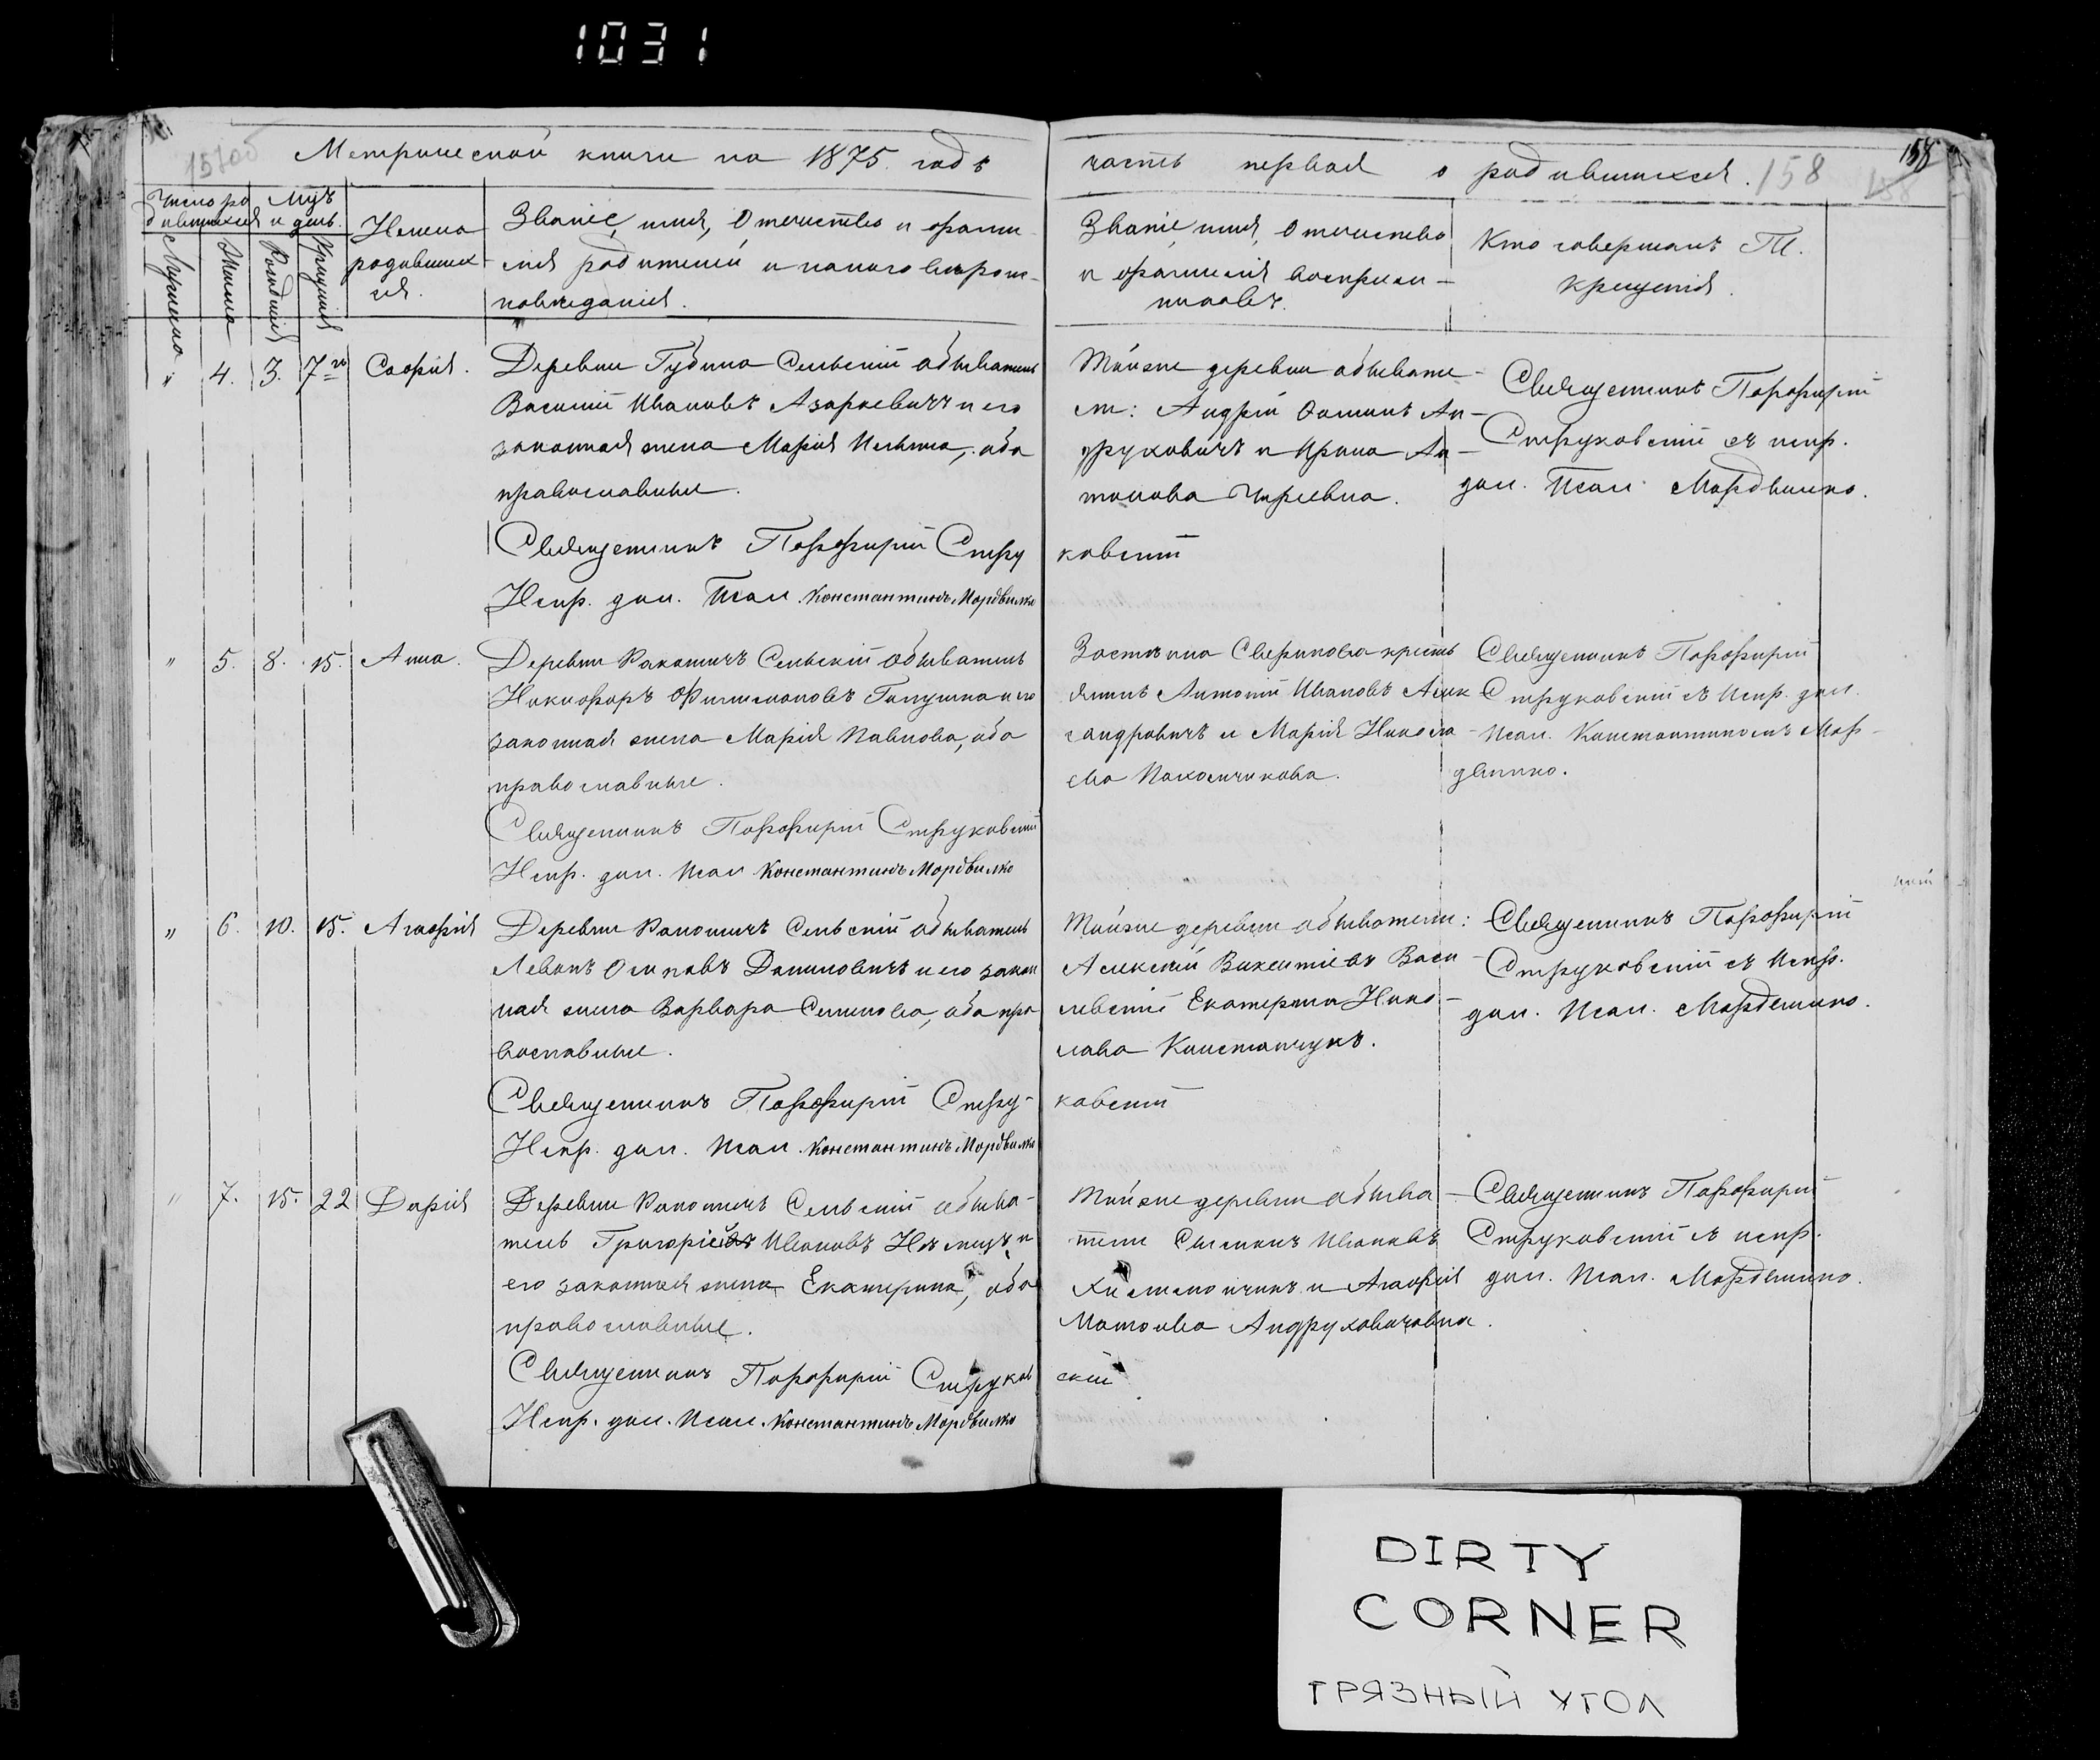 1031
157об
Метрической книги на 1875. годъ
часть первая о родившихся. 158
158
158
Число родившихся
Мужеска
Женска
Мцъ и день.
Рожденія
Крещенія
Имена
родивших
ся.
Званіе, имя, Отчество и фами-
лія родителей и какого вѣроис-
повѣданія.
Званіе, имя, Отчество
и фамилія воспріем-
никовъ.
Кто совершалъ Т.
крещенія.
" 4. 3. 7го Софія.
Деревни Губина Сельскій обыватель
Василій Ивановъ Азаркевичъ и его
законная жена Марія Ильина, оба
православные.
Священникъ Порфирій Стру
Испр. дол. Псал. Константинъ Мордвилко
Той же деревни обывате-
ли: Андрей Осиповъ Ан-
друховичъ и Ирина Ан-
тонова
ковскій
Священникъ Порфирій
Струковскій съ испр.
дол. Псал. Мордвилко.
" 5. 8. 15. Анна.
Деревни Сельскій обыватель
Никифоръ Филимоновъ и его
законная жена Марія Павлова, оба
православные.
Священникъ Порфирій Струковскій
Испр. дол. Псал. Константинъ Мордвилко
Застѣнка кресть
янинъ Антоній Ивановъ Алек
сандровичъ и Марія
Священникъ Порфирій
Струковскій съ Испр. дол.
Псал. Константиномъ Мор-
двилко.
" 6. 10. 15. Агафія
Деревни Сельскій обыватель
Левонъ Осиповъ Даниловичъ и его закон
ная жена Варвара Семенова, оба пра
вославные.
Священникъ Порфирій Стру-
Испр. дол. Псал. Константинъ Мордвилко
Той же деревни обыватели:
Алексѣй Викентіевъ Васи-
левскій Екатерина Нико-
лаева Констанчукъ.
ковскій
Священникъ Порфирій
Струковскій съ Испр.
дол. Псал. Мордвилко.
" 7. 15. 22 Дарія
Деревни Сельскій обыва-
тель Григорій Ивановъ и
его законная жена Екатерина, оба
православные.
Священникъ Порфирій Струков
Испр. дол. Псал. Константинъ Мордвилко
Той же деревни обыва-
тели Ивановъ
и Агафія
Андруховичовна.
скій
Священникъ Порфирій
Струковскій съ испр.
дол. Псал. Мордвилко.
DIRTY
CORNER
ГРЯЗНЫЙ УГОЛ